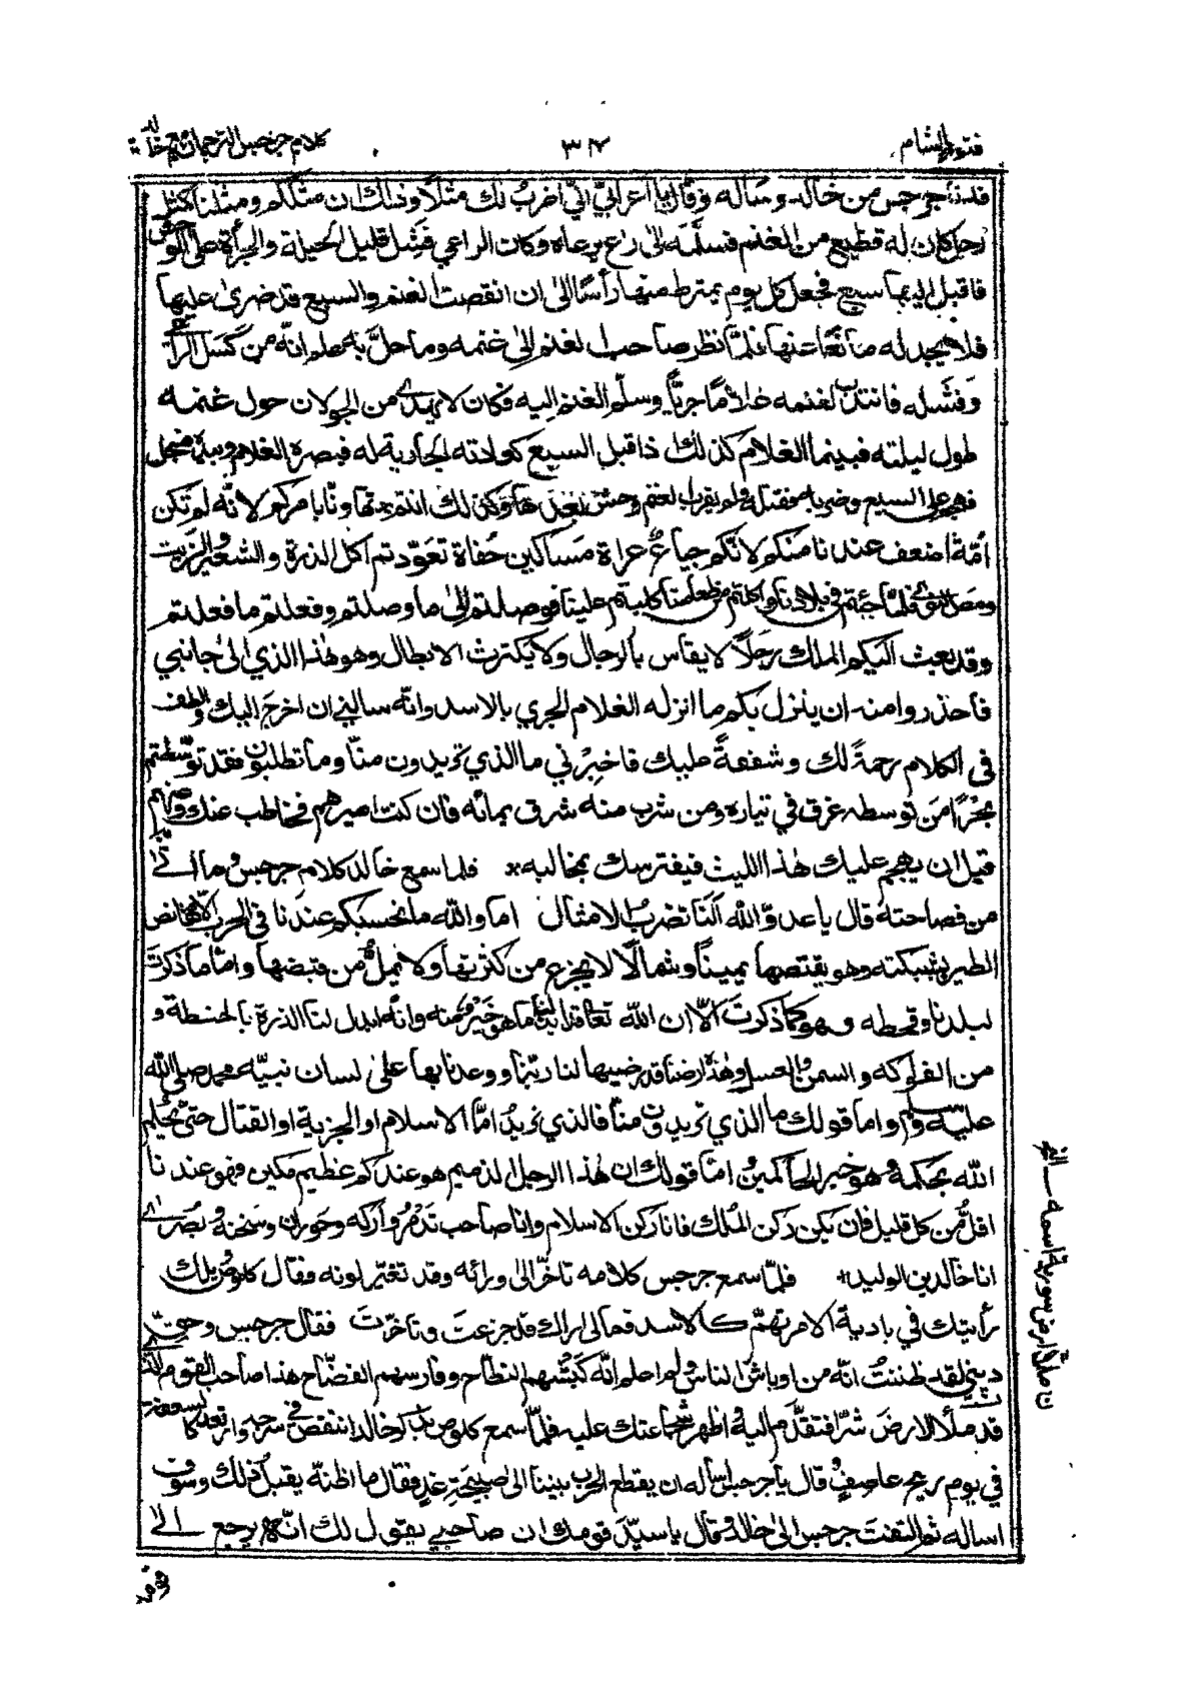 فتوح الشام
٣٢
كلام جرجيس الترجمان مع خالد
فدنا جرجيس من خالد وقال يا اعرابيّ انّي اضرب لك مثلًا وذلك ان مثلكم ومثلنا كمثل
رجل كان له قطيع من الغنم فسلّمه الى راع يرعاه وكان الراعي فشل قليل الحيلة والجرأة على الوحش
فاقبل اليها سبع فجعل كل يوم يمترط منها رأسًا الى ان انقصت الغنم والسبع قد ضرى عليها
فلا يجد له مانعًا عنها فلمّا نظر صاحب الغنم الى غنمه وما حلّ به علم انّه من كسل الراعي
وفشله فانتدب لغنمه غلامًا جريًّا وسلّم الغنم اليه فكان لا يهدى من الجولان حول غنمه
طول ليلته فبينما الغلام كذلك اذ اقبل السبع كعادته الجارية له فبصره الغلام وبيده منجل
فهجم على السبع وضربه فقتله ولم يقرب الغنم وحش بعدها وكذلك انتم تهاونّا بامركم لانّه لم تكن
أمّة اضعف عندنا منكم لانّكم جياع عراة مساكين حفاة تعوّدتم اكل الذرة والشعير والزيت
ومصّ النوى فلمّا جئتم في بلادنا واكلتم من طعامنا كلبتم علينا فوصلتم الى ما وصلتم وفعلتم ما فعلتم
وقد بعث اليكم الملك رجلًا لا يقاس بالرجال ولا يكترث الابطال وهو هذا الذي الى جانبي
فاحذروا منه ان ينزل بكم ما انزله الغلام الجري بالاسد وانّه سالني ان اخرج اليك والطف
في الكلام رحمةً لك وشفقةً عليك فاخبرني ما الذي تريدون منّا وما تطلبون فقد توسّطتم
بحرًا من توسطه غرق في تياره ومن شرب منه شرق بمائه فان كنت اميرهم فخاطب عنك وعنهم
قبل ان يهجم عليك هذا الليث فيفترسك بمخالبه* فلما سمع خالد كلام جرجيس وما اتى
من فصاحته قال يا عدوّ الله النا تضرب الامثال اما والله ما نحسبكم عندنا في الحرب الا كقانص
الطير بشبكته وهو يقتصها يمينًا وشمالًا لا يجزع من كثرتها ولا يملّ من قبضها واما ما ذكرت
لبلدنا وقحطه وهو كما ذكرت الّا ان الله تعالى ابدلنا ما هو خير منه وانّه ابدل لنا الذرة بالحنطة و
من الفواكه والسمن والعسل وهذه ارضنا قد رضيها لنا ربّنا ووعدنا بها على لسان نبيّه محمد صلى الله
عليه وسلم واما قولك ما الذي تريدون منّا فالذي نريد امّا الاسلام او الجزية او القتال حتى يحكم
الله بحكمه وهو خير الحاكمين وامّا قولك ان هذا الرجل الذميم هو عندكم عظيم مكين فهو عندنا
اقلّ من كل قليل فان يكن ركن الملك فانا ركن الاسلام وانا صاحب تدمر وأركه وحوران وسخنه وبصرى
انا خالد بن الوليد* فلمّا سمع جرجيس كلامه تاخّر الى ورائه وقد تغيّر لونه فقال كلوص ويلك
رأيتك في بادية الامر تهمّ كالاسد فما لي اراك قد جزعت وتاخّرت فقال جرجيس وحقّ
ديني لقد ظننت انّه من اوباش الناس ولم اعلم انّه كبشهم النطّاح وفارسهم الفضّاح هذا صاحب القوم الّذي
قد ملأ الارض شرًّا فتقدّم اليه واظهر شجاعتك عليه فلمّا سمع كلوص بذكر خالد انتفض في سرجه وارتعد كالسعفة
في يوم ريح عاصف وقال يا جرجيس اسأله ان يقطع الحرب بيننا الى صبيحة غد فقال ما اظنّه يقبل ذلك وسوف
اساله ثم التفت جرجيس الى خالد وقال يا سيّد قومك ان صاحبي يقول لك انّه يرجع الى
قومه
ن حلّا ارض سورية اسمه الخ